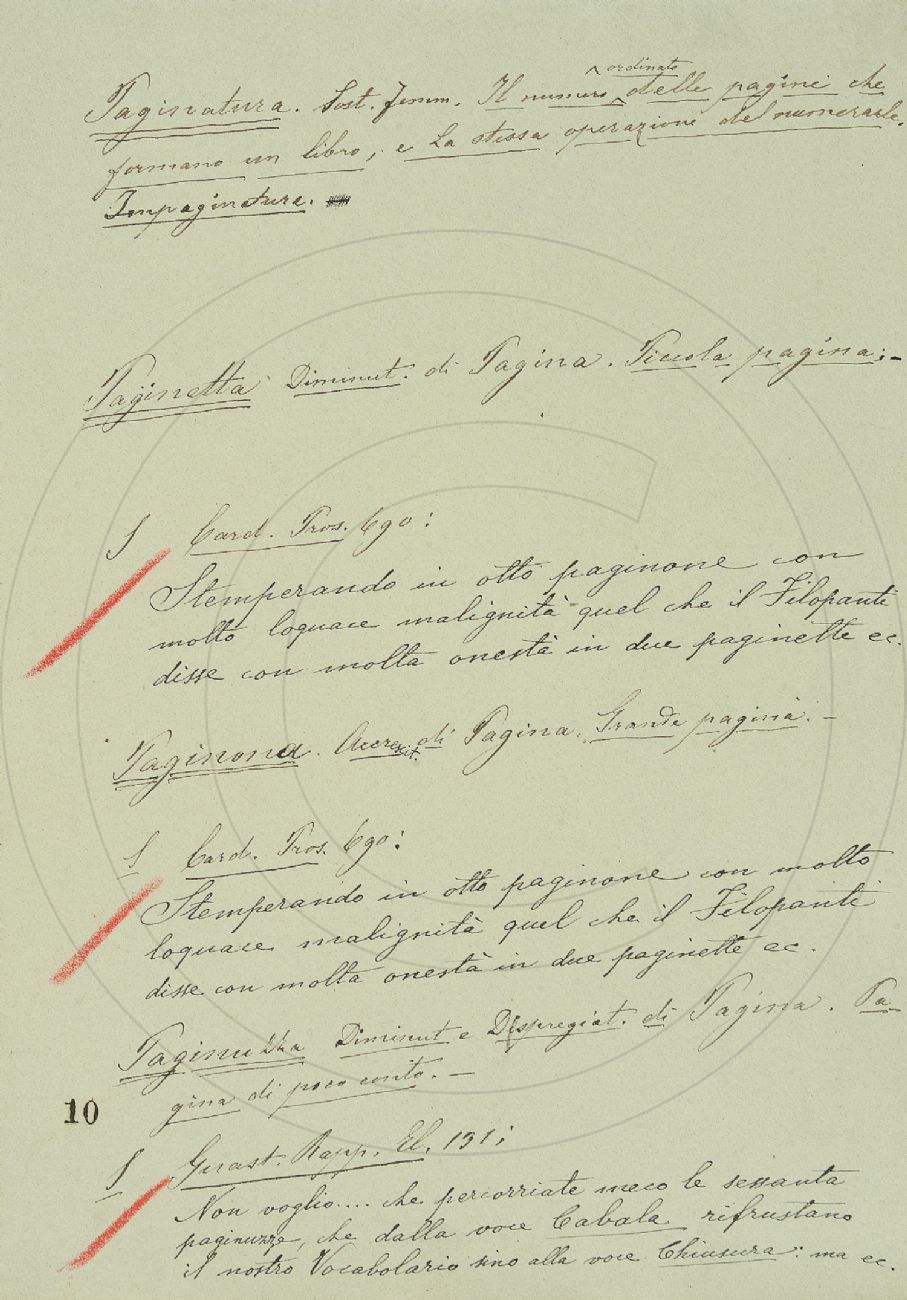 Paginatura. Sost. femm. Il numero ordinato delle pagine che
formano un libro, e La stessa operazione del numerarle.
Impaginatura.
Paginetta Diminut. di Pagina. Piccola pagina: -
§ Card. Pros. 690:
Stemperando in otto paginone con
molto loquace malignità quel che il Filopanti
disse con molta onestà in due paginette ec.
Paginona. Accrescit. di Pagina. Grande pagina. -
§ Card. Pros. 690:
Stemperando in otto paginone con molto
loquace malignità quel che il Filopanti
disse con molta onestà in due paginette ec.
Paginuzza Diminut. e Dispregiat. di Pagina. Pa-
gina di poco conto. -
10
§ Guast. Rapp. El. 131:
Non voglio.... che percorriate meco le sessanta
paginuzze, che dalla voce Cabala rifrustano
il nostro Vocabolario sino alla voce Chiusura: ma ec.